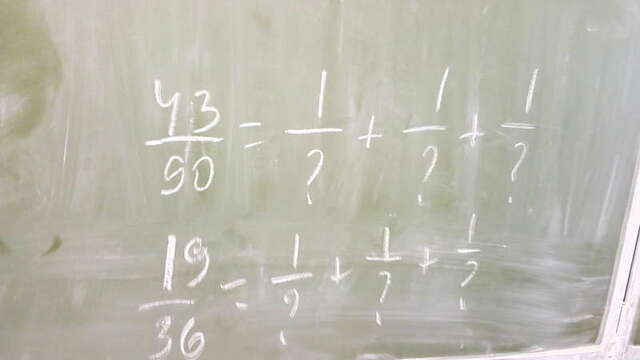 43/90 = 1/? + 1/? + 1/?
19/36 = 1/? + 1/? + 1/?